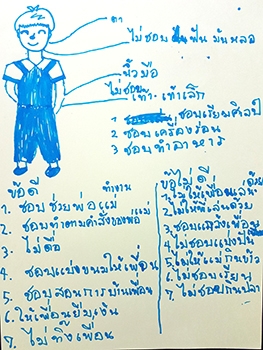 ตา
ไม่ชอบ ฟัน มันหลอ
นิ้วมือ
ไม่ชอบ
เท้า เท้าเล็ก
1 ชอบเรียนศิลป์
2 ชอบเครื่องร่อน
3 ชอบทำอาหาร
ข้อดี
1. ชอบช่วยพ่อแม่ ทำงาน
2. ชอบทำตามคำสั่งของพ่อแม่
3. ไม่ดื้อ
4 ชอบแบ่งขนมให้เพื่อน
5 ชอบสอนการบ้านเพื่อน
6. ให้เพื่อนยืมเงิน
7. ไม่ทิ้งเพื่อน
ข้อไม่ดี
1. ไม่ให้เพื่อนเล่นด้วย
2. ไม่ให้พี่เล่นด้วย
3. ชอบแกล้งเพื่อน
4. ไม่ชอบแบ่งปัน
5. ไม่ให้แม่กินข้าว
6. ไม่ชอบเรียน
7. ไม่ชอบกินปลา